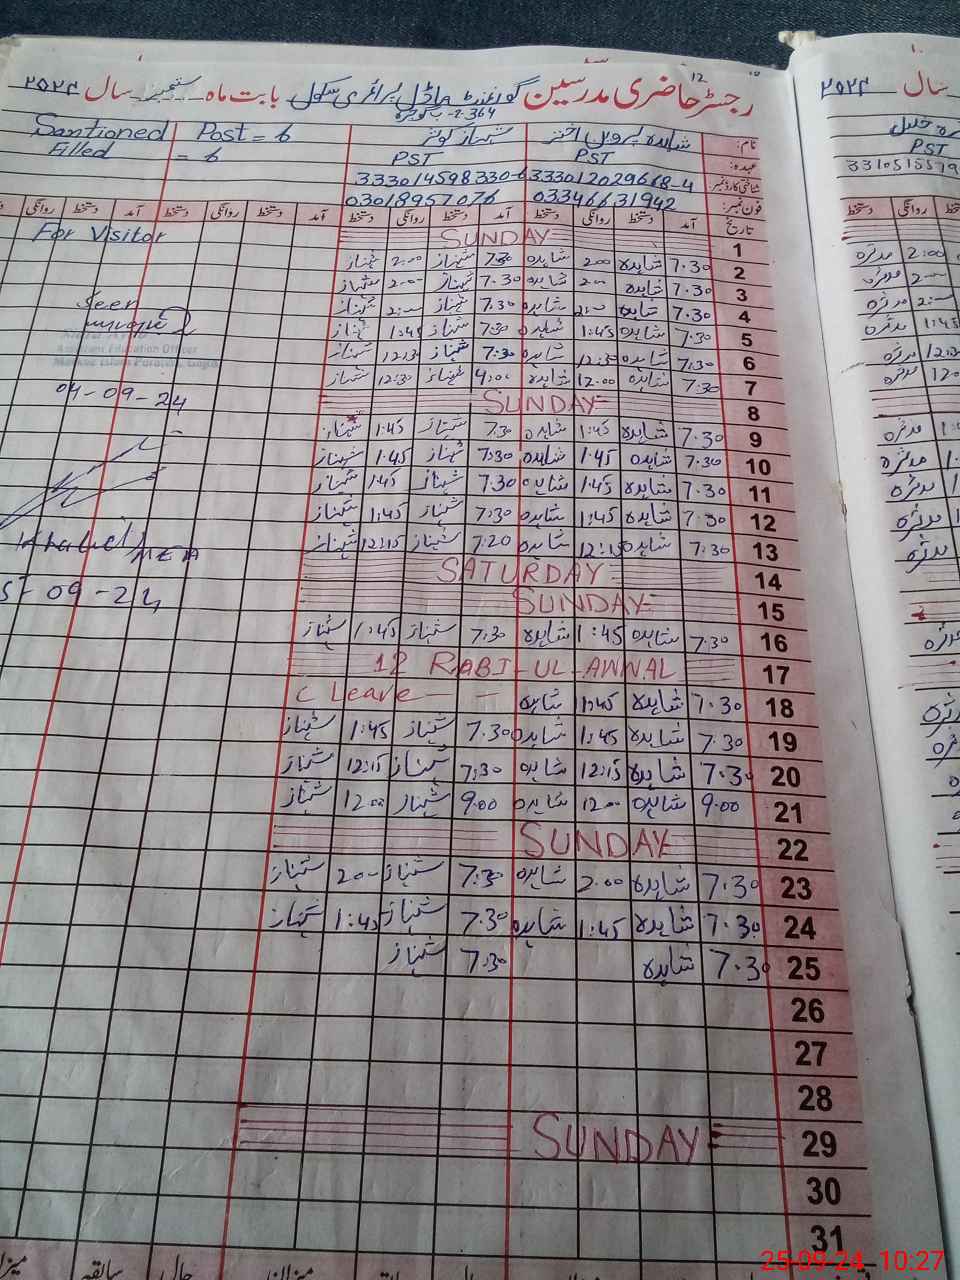 رجسٹر حاضری مدرسین گورنمنٹ ماڈل پرائمری سکول بابت ماہ ستمبر سال ۲۰۲۴
364
Santioned Post = 6
Filled = 6
نام: شاہدہ پروین اختر شہناز کوثر
عہدہ: PST PST
شناختی کارڈ نمبر: 333012029668-4 3330145983 30-6
فون نمبر: 03346631942 03018957076
تاریخ آمد دستخط روانگی دستخط آمد دستخط روانگی دستخط آمد دستخط روانگی دستخط آمد دستخط روانگی
For Visitor
1 SUNDAY
2 7.30 شاہدہ 2:00 شاہدہ 7:30 شہناز 2:00 شہناز
3 7.30 شاہدہ 2:00 شاہدہ 7.30 شہناز 2:00 شہناز
4 7.30 شاہدہ 2:00 شاہدہ 7:30 شہناز 2:00 شہناز
5 7.30 شاہدہ 1:45 شاہدہ 7:30 شہناز 1:45 شہناز
6 7.30 شاہدہ 12:30 شاہدہ 7:30 شہناز 12:30 شہناز
7 7.30 شاہدہ 12:00 شاہدہ شہناز 12:30 شہناز
8 SUNDAY
9 7.30 شاہدہ 1:45 شاہدہ 7.30 شہناز 1:45 شہناز
10 7.30 شاہدہ 1:45 شاہدہ 7:30 شہناز 1:45 شہناز
11 7.30 شاہدہ 1:45 شاہدہ 7.30 شہناز 1:45 شہناز
12 7.30 شاہدہ 1:45 شاہدہ 7:30 شہناز 1:45 شہناز
13 7.30 شاہدہ 12:15 شاہدہ 7:20 شہناز 12:15 شہناز
14 SATURDAY
15 SUNDAY
16 7.30 شاہدہ 1:45 شاہدہ 7.30 شہناز 1:45 شہناز
17 12 RABI-UL-AWNAL
18 7.30 شاہدہ 1:45 شاہدہ C Leave
19 7.30 شاہدہ 1:45 شاہدہ 7.30 شہناز 1:45 شہناز
20 7.30 شاہدہ 12:15 شاہدہ 7:30 شہناز 12:15 شہناز
21 9.00 شاہدہ 12:00 شاہدہ 9.00 شہناز 12:00 شہناز
22 SUNDAY
23 7.30 شاہدہ 2:00 شاہدہ 7:30 شہناز 2:00 شہناز
24 7.30 شاہدہ 1:45 شاہدہ 7.30 شہناز 1:45 شہناز
25 7.30 شاہدہ 7:30 شہناز
26
27
28
29 SUNDAY
30
31
Seen
Assistant Education Officer
04-09-24
MEA
5-09-24
سال ۲۰۲۴
PST
2:00 مدثرہ
2:00 مدثرہ
2:00 مدثرہ
1:45 مدثرہ
مدثرہ
مدثرہ
مدثرہ
مدثرہ
مدثرہ
مدثرہ
مدثرہ
25-09-24 10:27